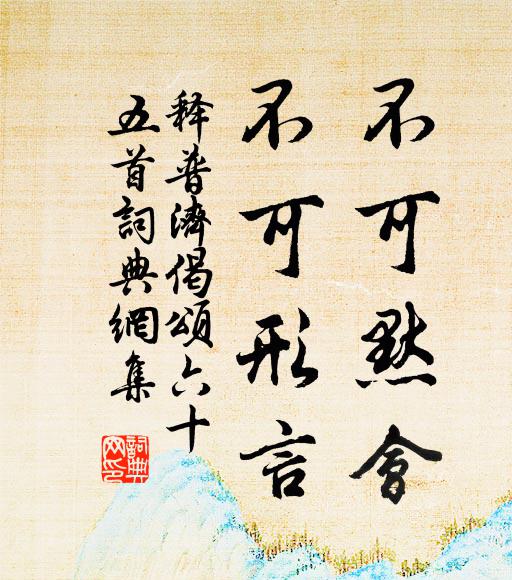 不可默會
不可形言
释普濟偈頌六十
五首詞典網集
詞典网印